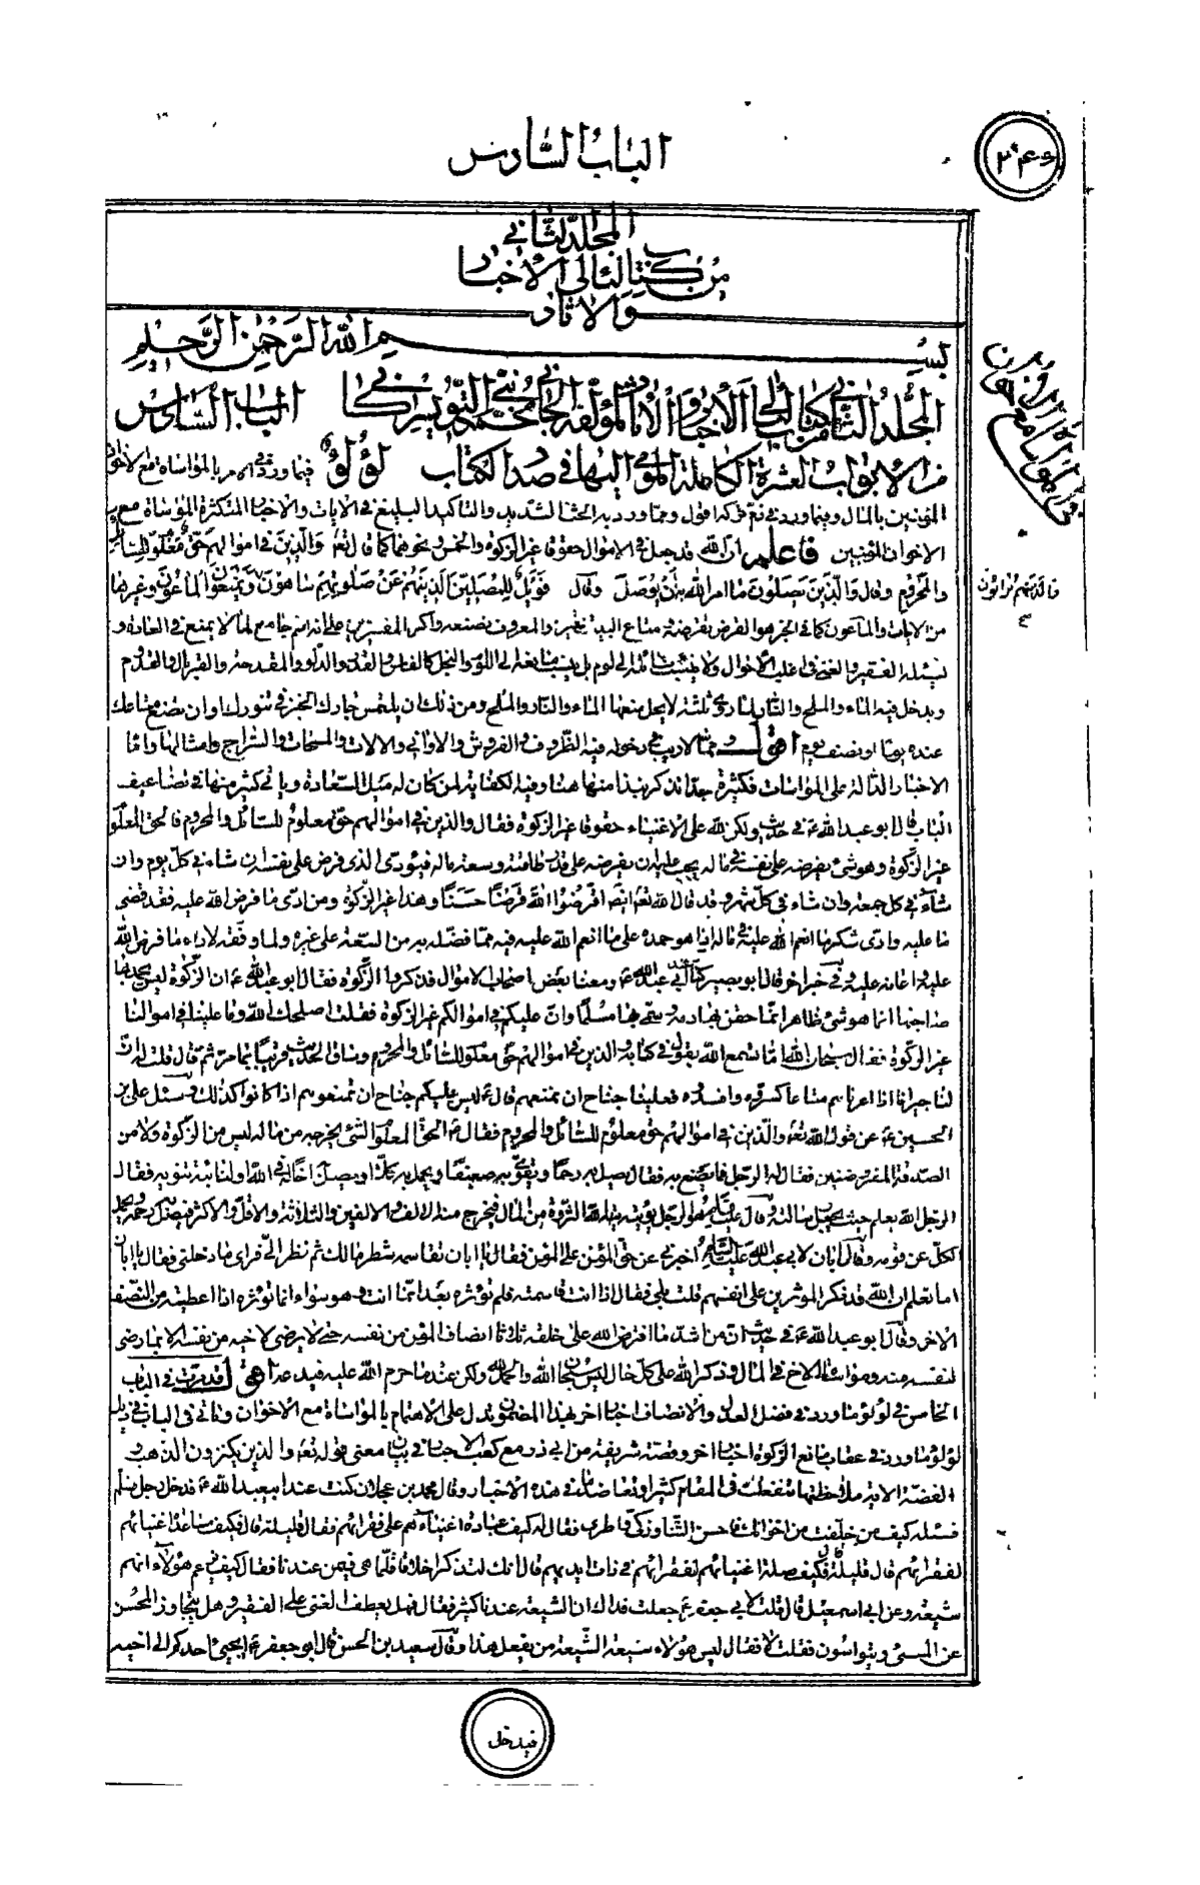 الباب السادس
المجلد الثاني
من كتاب لئالي الاخبار
والاثار
بسم الله الرحمن الرحيم
المجلد الثاني من كتاب لئالي الاخبار والاثار لمؤلفه الحاج محمد نبي التويسركاني الباب السادس
من الابواب العشرة الكاملة المومى اليها في صدر الكتاب لؤلؤ فيما ورد في الامر بالمؤاساة مع الاخوان
المؤمنين بالمال وفيما ورد في ذم تركه اقول ومما ورد به الحث الشديد والتاكيد البليغ في الايات والاخبار المتكثرة المؤساة مع
الاخوان المؤمنين فاعلم ان الله قد جعل في الاموال حقوقا غير الزكوة والخمس ونحوهما كما قال تعه والذين في اموالهم حق معلوم للسائل
والمحروم وقال والذين يصلون ما امر الله به ان يوصل وقال فويل للمصلين الذينهم عن صلوتهم ساهون ويمنعون الماعون وغيرها
من الايات والماعون كما في الخبر هو القرض يقرضه ومتاع البيت يعيره والمعروف يصنعه واكثر المفسرين على انه اسم جامع لما لا يمنع في العادة و
يسئله الفقير والغنى في اغلب الاحوال ولا ينسب سائله الى لوم بل ينسب مانعه الى اللؤم والبخل كالفاس والقدر والدلو والمقدحة والغربال والقدوم
ويدخل فيه الماء والملح والنار لما روى ثلثة لا يحل منعها الماء والنار والملح ومن ذلك ان يلتمس جارك الخبز في تنورك وان يضع متاعك
عنده يوما او نصف يوم اقول ومما لا ريب في دخوله فيه الظروف والفروش والاواني والالات والسراج وامثالها واما
الاخبار الدالة على المواسات فكثيرة جدا نذكر نبذا منها هنا وفيه لكفاية لمن كان له ميل السعادة وياتي كثير منها في تضاعيف
الباب قال ابو عبد الله ع في حديث ولكن الله على الاغنياء حقوقا غير الزكوة فقال والذين في اموالهم حق معلوم للسائل والمحروم فالحق المعلوم
غير الزكوة وهو شئ يفرضه على نفسه في ماله يجب عليه ان يفرضه على قدر طاقته وسعة ماله فيؤدى الذى فرض على نفسه ان شاء في كل يوم وان
شاء في كل جمعة وان شاء في كل شهر وقد قال الله تعه ايضا اقرضوا الله قرضا حسنا وهذا غير الزكوة ومن ادى ما فرض الله عليه فقد قضى
ما عليه وادى شكر ما انعم الله عليه في ماله اذا هو حمده على ما انعم الله عليه فيه مما فضله به من السعة على غيره ولما وفقه لاداء ما فرض الله
عليه واعانه عليه وفي خبر اخر قال ابو بصير كنا عند ابي عبد الله ع ومعنا بعض اصحاب الاموال فذكروا الزكوة فقال ابو عبد الله ع ان الزكوة ليس يحمد بها
صاحبها انما هو شئ ظاهر انما حقن بها دمه وسمى بها مسلما وان عليكم في اموالكم غير الزكوة فقلت اصلحك الله وما علينا في اموالنا
غير الزكوة فقال سبحان الله اما تسمع الله يقول في كتابه والذين في اموالهم حق معلوم للسائل والمحروم وساق الحديث قريبا مما مر ثم قال قلت له ان
لنا جيرانا اذا اعرناهم متاعا كسروه وافسدوه فعلينا جناح ان نمنعهم قال ع ليس عليكم جناح ان تمنعوهم اذا كانوا كذلك وسئل على بن
الحسين ع عن قول الله تعه والذين في اموالهم حق معلوم للسائل والمحروم فقال ع الحق المعلوم الشئ يخرجه من ماله ليس من الزكوة ولا من
الصدقة المفروضتين فقال له الرجل فما يصنع به فقال يصل به رحما ويقوى به ضعيفا ويحمل به كلا او يصل اخا له في الله او لنائبة تنوبه فقال
الرجل الله يعلم حيث يجعل رسالته وقال عليه السلام هو الرجل يؤتيه الله الثروة من المال فيخرج منه الالف والالفين والثلاثة والاقل والاكثر فيصل به رحمه ويحمل
الكل عن قومه وقال ابان لابي عبد الله عليه السلام اخبرني عن حق المؤمن على المؤمن فقال يا ابان تقاسمه شطر مالك ثم نظر الى فراى ما دخلني فقال يا ابان
اما تعلم ان الله قد ذكر المؤثرين على انفسهم قلت بلى فقال اذا انت قاسمته فلم تؤثره بعد انما انت وهو سواء انما تؤثره اذا اعطيته من النصف
الاخر وقال ابو عبد الله ع في حديث ان من اشد ما افترض الله على خلقه ثلاثا انصاف المؤمن من نفسه حتى لا يرضى لاخيه من نفسه الا بما رضى
لنفسه منه ومواساة الاخ في المال وذكر الله على كل حال ليس سبحان الله والحمد لله ولكن عند ما حرم الله عليه فيدعه اقول قد مرت في الباب
الخامس في لؤلؤ ما ورد في فضل العدل والانصاف اخبار اخر بهذا المضمون تدل على الاهتمام بالمواساة مع الاخوان وتاتي في الباب في ذيل
لؤلؤ ما ورد في عقاب مانع الزكوة اخبار اخر وقصة شريفة من ابي ذر مع كعب الاحبار في بيان معنى قوله تعه والذين يكنزون الذهب
والفضة الاية ملاحظتها تنفعك في المقام كثيرا وتفاصيل في هذه الاخبار وقال محمد بن عجلان كنت عند ابي عبد الله ع فدخل رجل فسلم
فسئله كيف من خلفت من اخوانك فاحسن الثناء وزكى واطرى فقال له كيف عيادة اغنيائهم على فقرائهم فقال قليلة قال فكيف مساعدة اغنيائهم
لفقرائهم قال قليلة قال فكيف صلة اغنيائهم لفقرائهم في ذات ايديهم قال انك لتذكر اخلاقا قلما هى فيمن عندنا فقال كيف يزعم هؤلاء انهم
شيعة وعن ابي اسمعيل قال قلت لابي جعفر ع جعلت فداك ان الشيعة عندنا كثير فقال فهل يعطف الغنى على الفقير وهل يتجاوز المحسن
عن المسئ ويتواسون فقلت لا فقال ليس هؤلاء شيعة الشيعة من يفعل هذا وقال سعيد بن الحسن قال ابو جعفر ع ايجئ احدكم الى اخيه
فالذينهم يراؤن
فيدخل